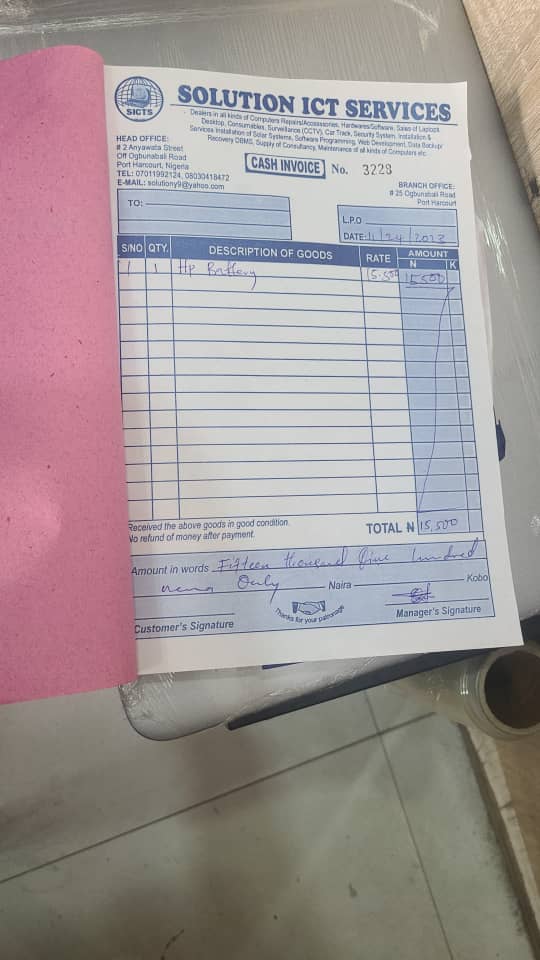 SICTS
SOLUTION ICT SERVICES
Dealers in all kinds of Computers Repairs/Accessories, Hardwares/Software, Sales of Laptops
Desktop, Consumables, Surveillance (CCTV), Car Track, Security System, Installation &
Services Installation of Solar Systems, Software Programming, Web Development, Data Backup/
Recovery DBMS, Supply of Consultancy, Maintenance of all kinds of Computers etc.
HEAD OFFICE:
# 2 Anyawata Street
Off Ogbunabali Road
Port Harcourt, Nigeria
TEL: 07011992124, 08030418472
E-MAIL: solutiony9@yahoo.com
CASH INVOICE No. 3228
BRANCH OFFICE:
# 25 Ogbunabali Road
Port Harcourt
TO:
L.P.O
DATE: 11/24/2023
S/NO QTY. DESCRIPTION OF GOODS RATE AMOUNT
N K
1 1 Hp Battery 15.500 15500
Received the above goods in good condition.
No refund of money after payment.
TOTAL ₦ 15,500
Amount in words Fifteen thousand five hundred
Only Naira Kobo
Thanks for your patronage
Customer's Signature Manager's Signature